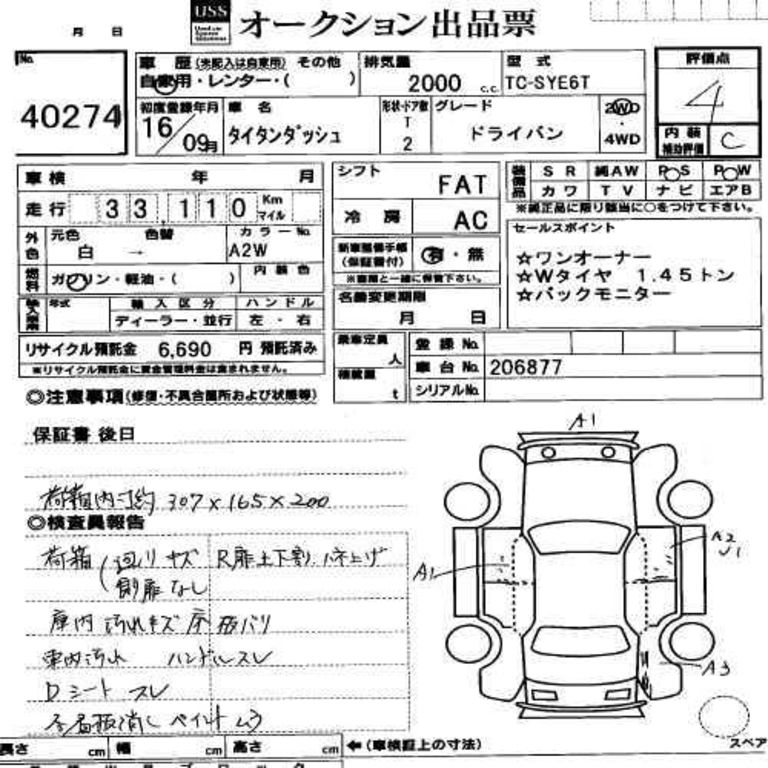 USS オークション出品票
月 日
No. 40274
車歴 (未記入は自家用) その他
自家用・レンター・( )
排気量 2000 c.c.
型式 TC-SYE6T
評価点 4
初度登録年月 16/09月
車名 タイタンダッシュ
形状・ドア数 T 2
グレード ドライバン
2WD ・ 4WD
内装補助評価 C
車検 年 月
走行 33,110 Km マイル
外色 元色 白 色替 → カラーNo. A2W
燃料 ガソリン・軽油・( ) 内装色
輸入車 年式 輸入区分 ディーラー・並行 ハンドル 左・右
リサイクル預託金 6,690 円 預託済み
※リサイクル預託金に資金管理料金は含まれません。
シフト FAT
冷房 AC
新車整備手帳 (保証書付) 有・無
※書類と一緒に保管下さい。
名義変更期限 月 日
乗車定員 人
積載量 t
装備品 SR 純AW PS PW
カワ TV ナビ エアB
※純正品に限り該当に○をつけて下さい。
セールスポイント
☆ワンオーナー
☆Wタイヤ 1.45トン
☆バックモニター
登録No.
車台No. 206877
シリアルNo.
◎注意事項(修復・不具合箇所および状態等)
保証書後日
荷箱内寸約 307×165×200
◎検査員報告
荷箱 (廻りキズ R扉上下割、ハネ上げ
側扉なし
庫内 汚れキズ 床
車内汚れ ハンドルスレ
Dシート スレ
ペイント
A1
A1
A2
U1
A3
スペア
長さ cm 幅 cm 高さ cm ←(車検証上の寸法)